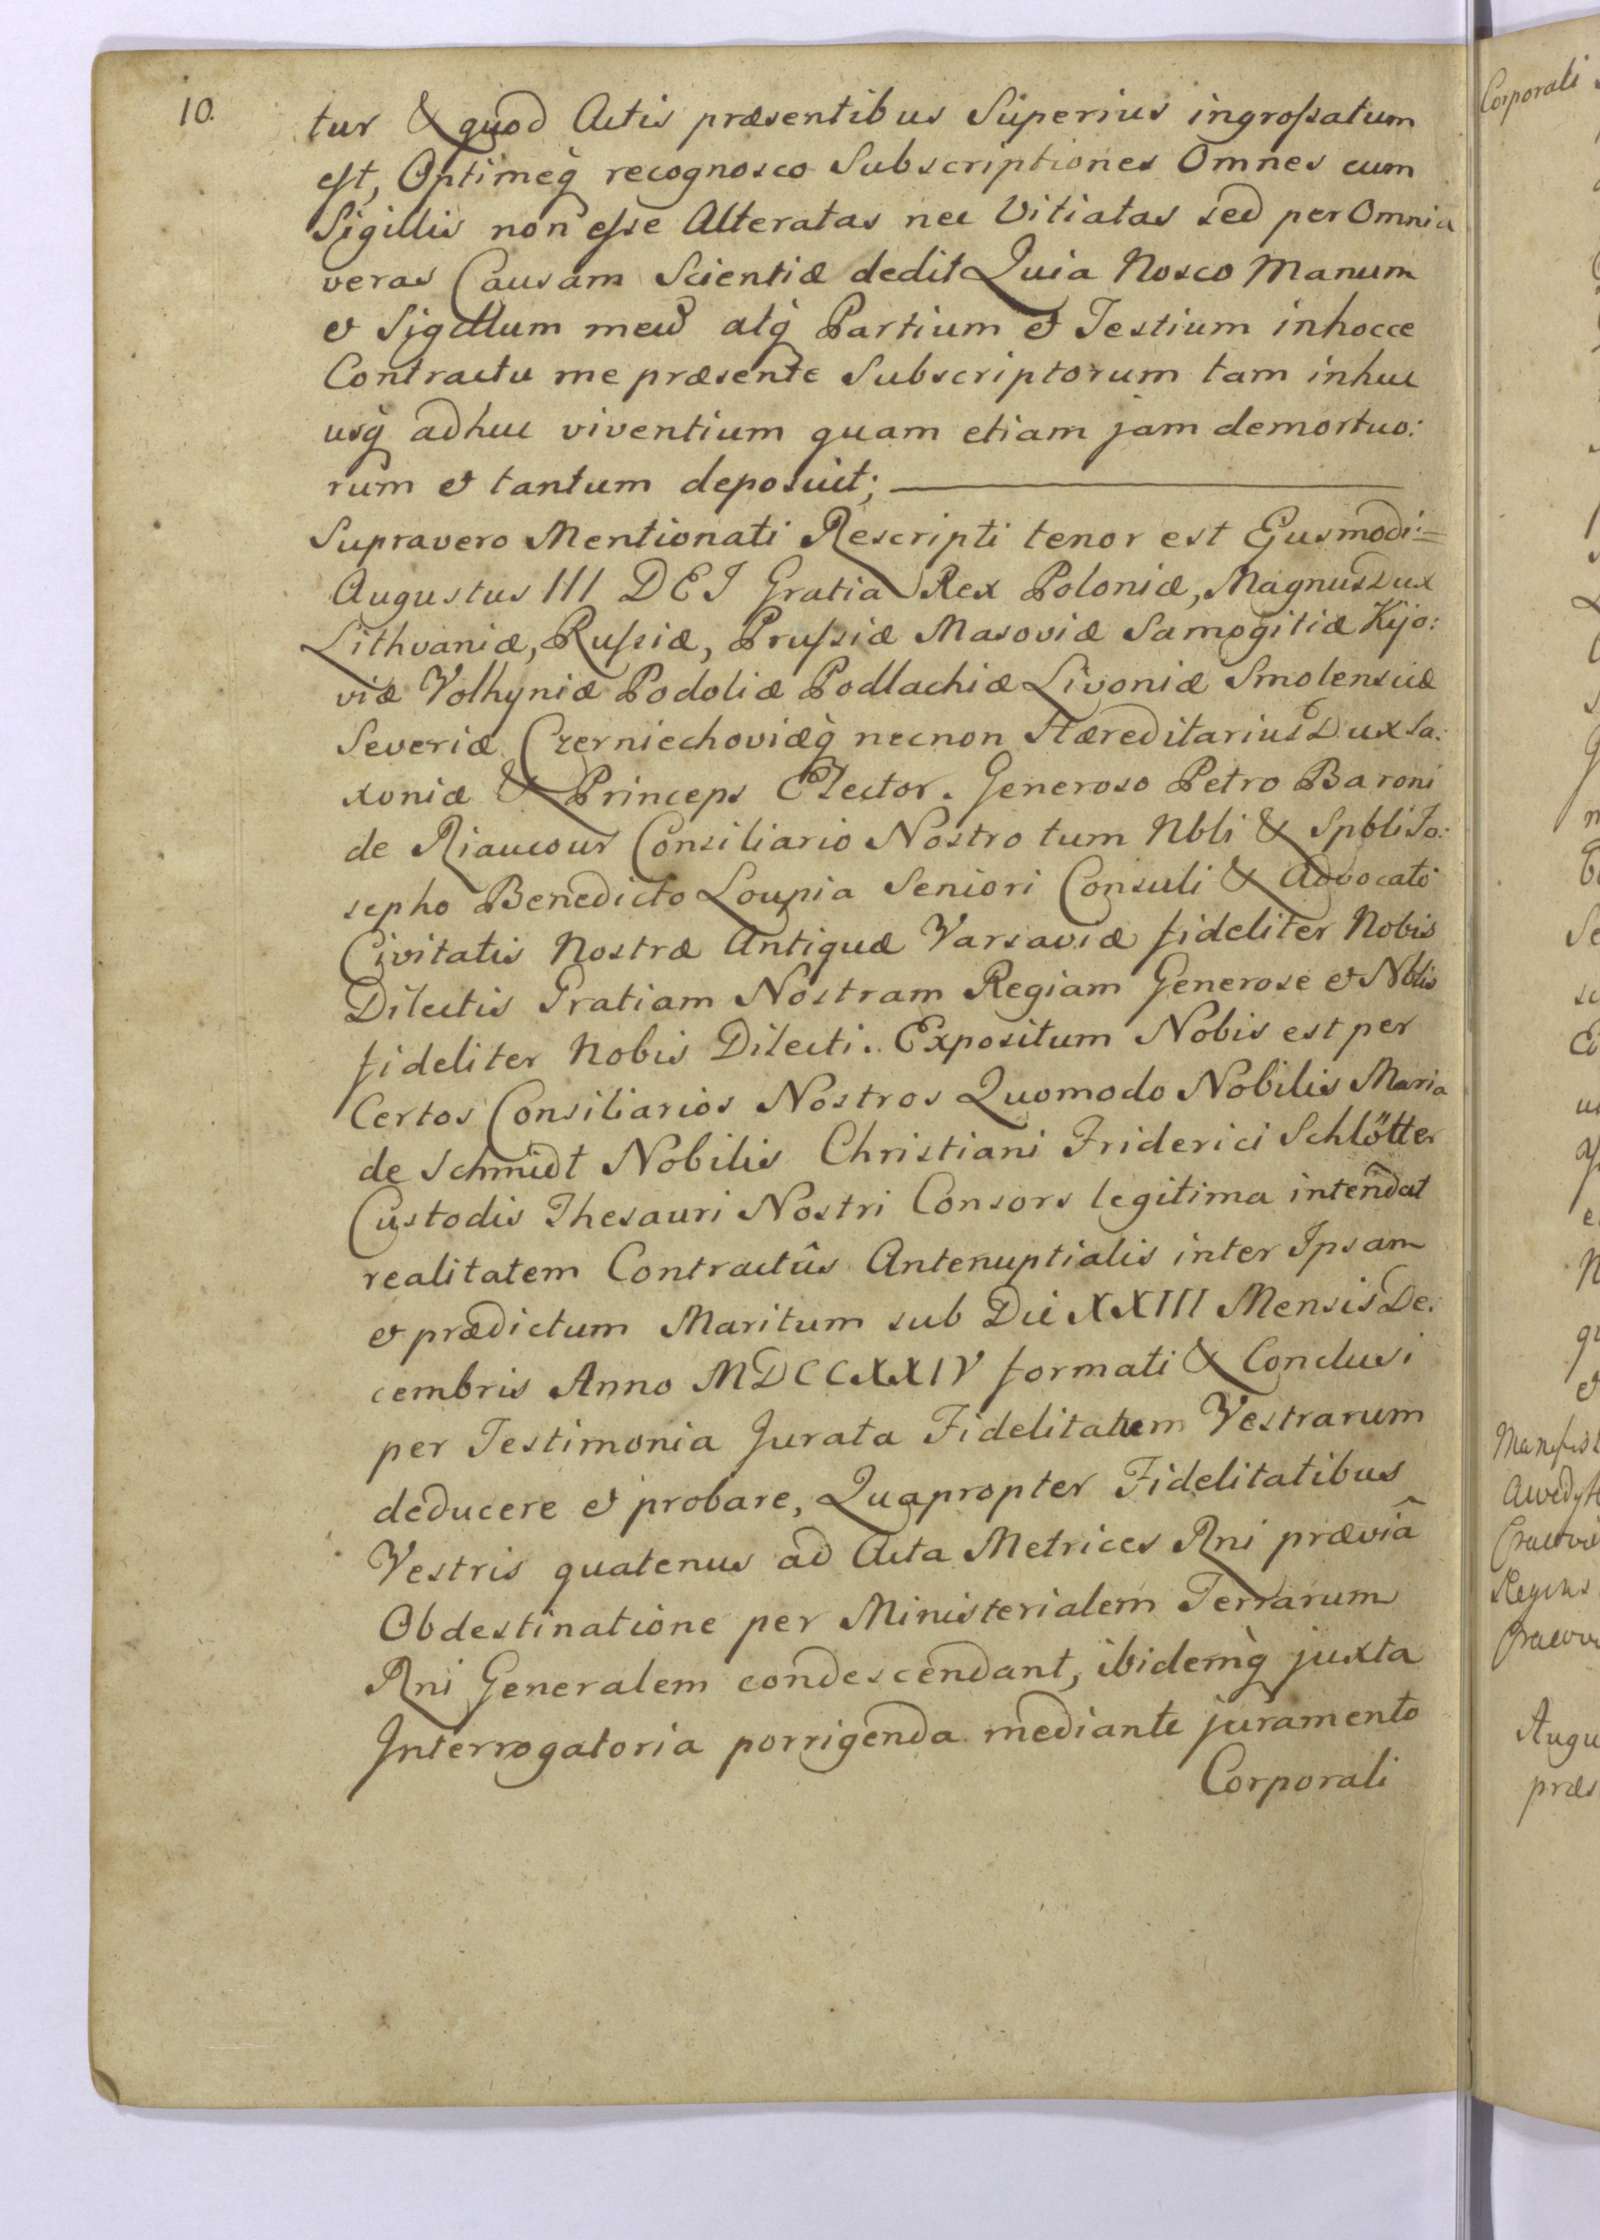 10.
tur & quod Actis præsentibus Superius ingrossatum
est, Optimeq̀ recognosco Subscriptiones Omnes cum
Sigillis non esse Alteratas nec Vitiatas sed per Omnia
veras Causam Scientiæ dedit Quia Nosco Manum
et Sigillum meum̄ atq̀ Partium et Testium inhocce
Contractu me præsente Subscriptorum tam inhuc
usq̀ adhuc viventium quam etiam jam demortuo:
rum et tantum deposuit;
Supravero Mentionati Rescripti tenor est Ejusmodi:=
Augustus III DEI Gratia Rex Poloniæ, Magnus Dux
Lithvaniæ, Russiæ, Prussiæ Masoviæ Samogitiæ Kijo:
viæ Volhyniæ Podoliæ Podlachiæ Livoniæ Smolensciæ
Severiæ Czerniechoviæq̀ necnon Hæreditarius Dux Sa:
xoniæ & Princeps Elector. Generoso Petro Baroni
de Riaucour Consiliario Nostro tum Nbli & Spbli Jo:
sepho Benedicto Loupia Seniori Consuli & Advocato
Civitatis Nostræ Antiquæ Varsaviæ fideliter Nobis
Dilectis Gratiam Nostram Regiam Generose et Nblis
fideliter Nobis Dilecti. Expositum Nobis est per
Certos Consiliarios Nostros Quomodo Nobilis Maria
de Schmidt Nobilis Christiani Friderici Schlötter
Custodis Thesauri Nostri Consors legitima intendat
realitatem Contractûs Antenuptialis inter Ipsam
et prædictum Maritum sub Die XXIII Mensis De:
cembris Anno MDCCXXIV formati & Conclusi
per Testimonia Jurata Fidelitatum Vestrarum
deducere et probare, Quapropter Fidelitatibus
Vestris quatenus ad Acta Metrices Rni præviâ
Obdestinatione per Ministerialem Terrarum
Rni Generalem condescendant, ibidemq̀ juxta
Interrogatoria porrigenda mediante juramento
Corporali
Corporali